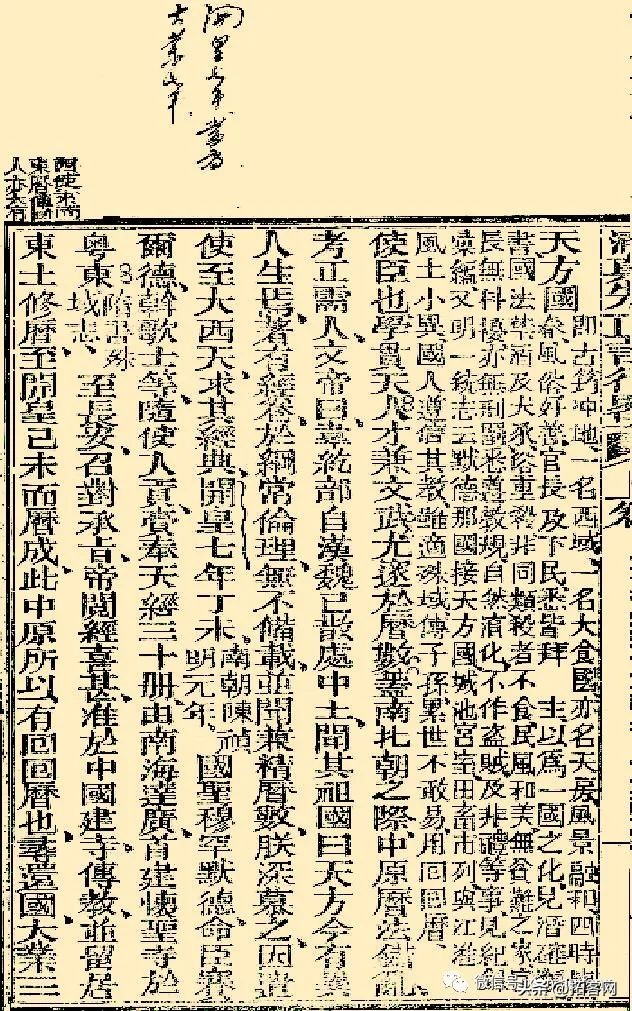 開皇七年
大業
天方國 即古筠冲地、一名西域、一名大食國亦名天房風景融和四時皆
春風俗好善官長及下民悉皆拜 主以爲一國之化見潛確
書國法禁酒及犬豕俗重殺非同類殺者不食民風和美無貧難之家官
長無科擾亦無刑罰悉善教規自然消化不作盜賊及非禮等事見紀
錄編又明一統志云默德那國接天方國城池宮室田畜市列與江淮
風土小異國人遵信其教雖適殊域傳子孫累世不敢易用回回曆、
使臣也學貫天人才兼文武尤邃於曆數蓋南北朝之際中原曆法錯亂
考正需人文帝曰華統部自漢魏已散處中土聞其祖國曰天方今有異
人生焉、著有經卷於綱常倫理、無不備載、並聞兼精曆數、朕深慕之、因遣
使至大西天求其經典、開皇七年丁未、南朝陳禎明元年、國聖穆罕默德命臣賽
爾德、斡歌士等、隨使人貢、賫奉天經三十册、由南海達廣、首建懷聖寺於
粤東 見隋書殊域志、 至長安、召對承旨帝閱經喜甚、准於中國建寺傳教、並留居
東土修曆、至開皇己未而曆成、此中原所以有回回曆也、尋還國、大業三
头条@拍客网